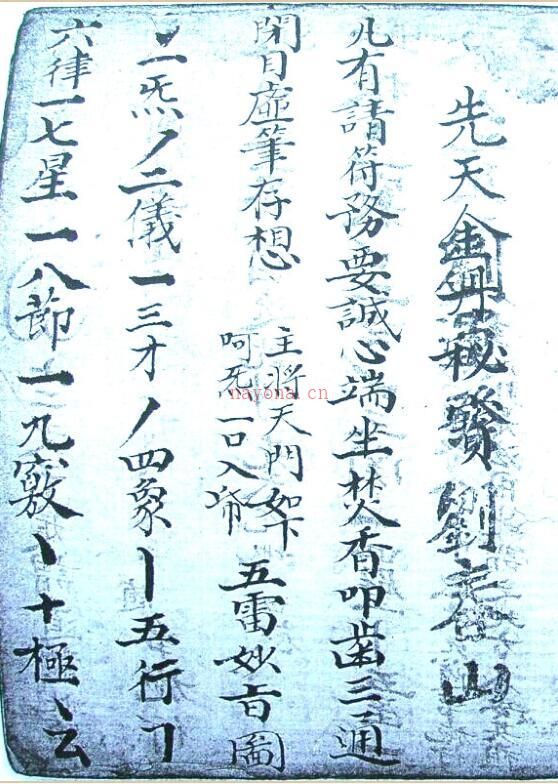 先天金丹秘寶劉文谷山
凡有請符務要誠心端坐焚香叩齒三通
閉目虛筆存想 主將天門如下
呵炁一口入筆 五雷妙旨圖
丿一炁丿二儀一三才丿四象丨五行𠃌
六律一七星一八節一九竅丶十極丶云
nayona.cn